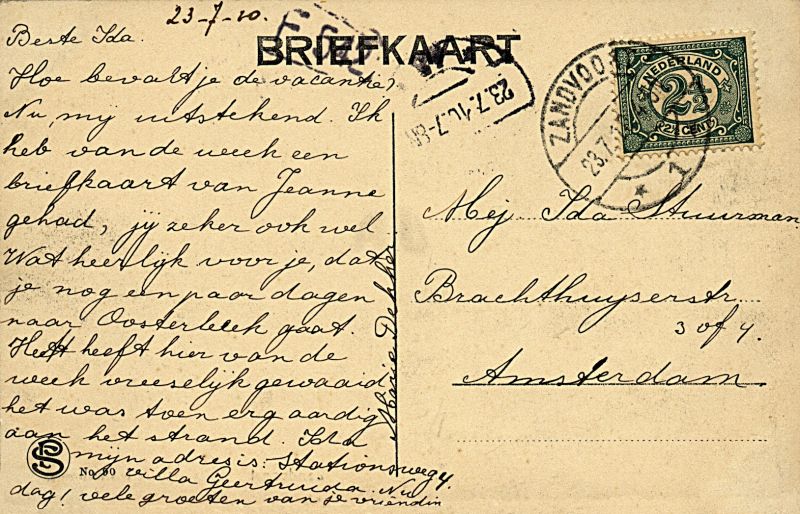 23-7-10.
Beste Ida.
BRIEFKAART
Hoe bevalt je de vacantie?
Nu, mij uitstekend. Ik
heb van de week een
briefkaart van Jeanne
gehad, jij zeker ook wel
Wat heerlijk voor je, dat
je nog een paar dagen
naar Oosterbeek gaat.
Heeft heeft hier van de
week vreeselijk gewaaid
het was toen erg aardig
aan het strand. Ida
mijn adres is: Stationsweg 4
villa Geertruida. Nu
dag! vele groeten van je vriendin
Marie Dekker
No. 90
23.7.10.7-8
ZANDVOO
23.7.1
1
NEDERLAND
2½
2½ CENT
Mej Ida Stuurman
Brachthuyserstr
3 of 4.
Amsterdam.